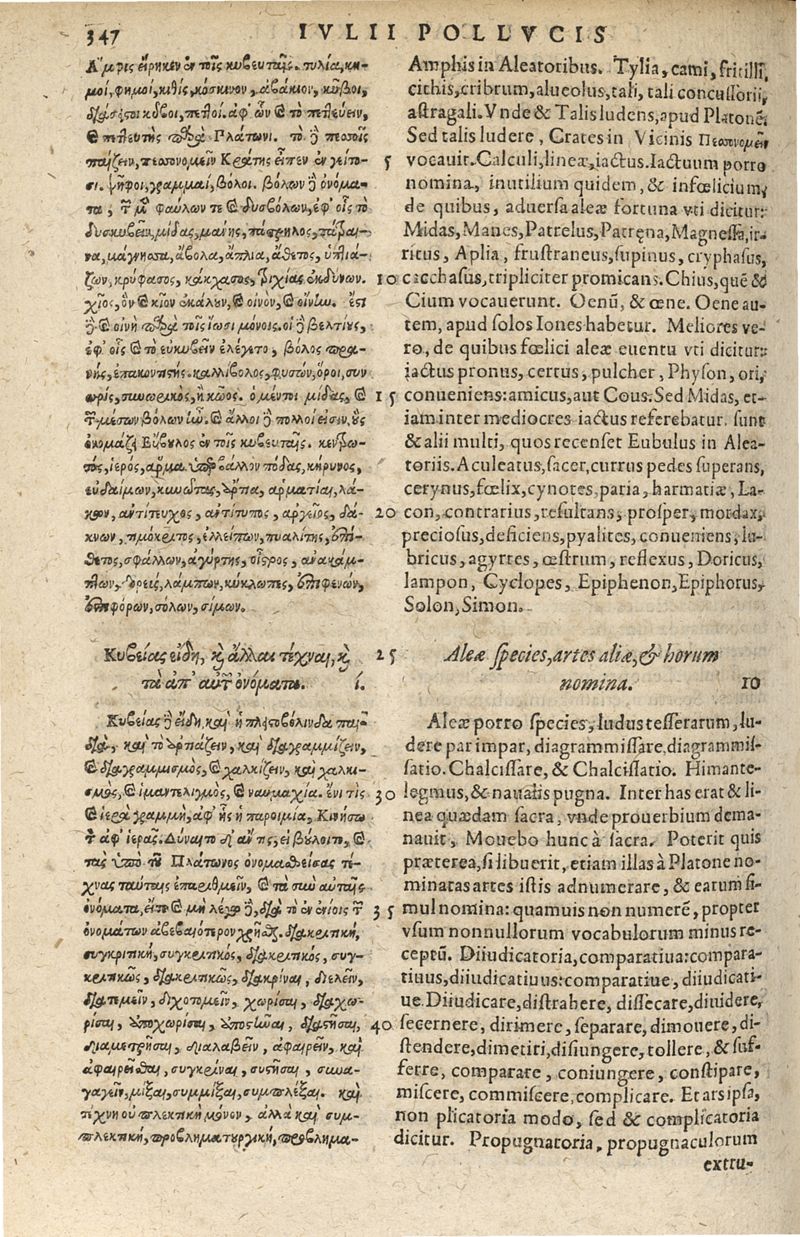 347 IVLII POLLVCIS
Ἄμφις εἴρηκεν ἐν τοῖς κυβευταῖς. τηλία, κη-
μοὶ, φιμοὶ, κηθὶς, κόσκινον, ἀβάκιον, κύβοι,
διάσειστοι κύβοι, πεττοί. ἀφ' ὧν καὶ τὸ πεττεύειν,
καὶ πεττευτὴς παρὰ Πλάτωνι. τὸ δὲ πεσσοῖς
παίζειν, πεσσονομεῖν Κράτης εἶπεν ἐν γείτο-
σι. ψῆφοι, γραμμαὶ, βόλοι. βόλων δὲ ὀνόμα-
τα, τῶν μὲν φαύλων τε καὶ δυσβόλων, ἐφ' οἷς τὸ
χῖος, ὃν καὶ κῖον ἐκάλουν, καὶ οἰνὸν, καὶ οἰνίω. ἔστι
δὲ καὶ οἰνὴ παρὰ τοῖς ἴωσι μόνοις. οἱ δὲ βελτίους,
ἐφ' οἷς καὶ τὸ εὐκυβεῖν ἐλέγετο, βόλος πρα-
τῶν μέσων βόλων ἦν. καὶ ἄλλοι δὲ πολλοί εἰσιν, οὓς
ὀνομάζει Εὔβουλος ἐν τοῖς κυβευταῖς. κεντρω-
τὸς, ἱερὸς, ἅρμα ὑπερβάλλον πόδας, κήρυνος,
εὐδαίμων, κυνώτας, ἄρτια, ἁρμάτιαι, λά-
κων, ἀντίτευχος, ἀντίτυπος, ἀργεῖος, δά-
κνων, τιμόκριτος, ἐλλείπων, πυαλίτης, ἐπί-
θετος, σφάλλων, ἀγύρτης, οἶστρος, ἀνακάμ-
πτων, δωριεὺς, λάμπων, κύκλωπες, ἐπιφένων,
ἐπιφόρων, σόλων, σίμων.
Κυβείας εἴδη, καὶ ἄλλαι τέχναι, καὶ
τὰ ἀπ' αὐτῶν ὀνόματα. ί.
Κυβείας δὲ εἴδη, καὶ ἡ πλειστοβολίνδα παι-
διὰ, καὶ τὸ ἀρτιάζειν, καὶ διαγραμμίζειν,
καὶ διαγραμμισμὸς, καὶ χαλκίζειν, καὶ χαλκι-
σμὸς, καὶ ἱμαντελιγμὸς, καὶ ναυμαχία. ἔνι τις
καὶ ἱερὰ γραμμὴ, ἀφ' ἧς ἡ παροιμία, Κινήσω
τὸν ἀφ' ἱερᾶς. Δύναιτο δ' ἄν τις, εἰ βούλοιτο, καὶ
τὰς ὑπὸ τοῦ Πλάτωνος ὀνομασθείσας τέ-
χνας ταύταις ἐπαριθμεῖν, καὶ τὰ σὺν αὐταῖς
ὀνόματα, εἴπω καὶ μὴ λέγω δὲ, διὰ τὸ ἐν ἐνίοις τῶν
ὀνομάτων ἀβεβαιότερον χρῆσθαι. διακριτικὴ,
συγκριτικὴ, συγκριτικὸς, διακριτικὸς, συγ-
κριτικῶς, διακριτικῶς, διακρίναι, διελεῖν,
διατεμεῖν, διχοτομεῖν, χωρίσαι, διαχω-
ρίσαι, ἀποχωρίσαι, ἀποσπάσαι, διαστῆσαι,
διαμετρῆσαι, διαλαβεῖν, ἀφαιρεῖν, καὶ
ἀφαιρεῖσθαι, συγκρῖναι, συστῆσαι, συνα-
γαγεῖν, μίξαι, συμμίξαι, συμπλέξαι. καὶ
τέχνη οὐ πλεκτικὴ μόνον, ἀλλὰ καὶ συμ-
πλεκτικὴ, προβληματουργικὴ, προβλημα-
5
10
15
20
25
30
35
40
Amphis in Aleatoribus. Tylia, cami, fritilli,
cithis, cribrum, alueolus, tali, tali concussorii,
astragali. Vnde & Talis ludens, apud Platonē.
Sed talis ludere, Crates in Vicinis Πεσσονομεῖν
vocauit. Calculi, lineæ, iactus. Iactuum porro
nomina, inutilium quidem, & infœlicium,
de quibus, aduersa aleæ fortuna vti dicitur:
Midas, Manes, Patrelus, Patręna, Magnessa, ir-
ricus, Aplia, frustraneus, supinus, cryphasus,
cacchasus, tripliciter promicans. Chius, quē &
Cium vocauerunt. Oenū, & œne. Oene au-
tem, apud solos Iones habetur. Meliores ve-
ro, de quibus fœlici aleæ euentu vti dicitur:
iactus pronus, certus, pulcher, Physon, ori,
conueniens: amicus, aut Cous. Sed Midas, et-
iam inter mediocres iactus referebatur. sunt
& alii multi, quos recenset Eubulus in Alea-
toriis. Aculeatus, sacer, currus pedes superans,
cerynus, fœlix, cynotes, paria, harmatiæ, La-
con, contrarius, resultans, prosper, mordax,
preciosus, deficiens, pyalites, conueniens, lu-
bricus, agyrtes, œstrum, reflexus, Doricus,
lampon, Cyclopes, Epiphenon, Epiphorus,
Solon, Simon.
Aleæ species, artes aliæ, & horum
nomina. 10
Aleæ porro species, ludus tesserarum, lu-
dere par impar, diagrammissare, diagrammis-
satio. Chalcissare, & Chalcissatio. Himante-
legmus, & naualis pugna. Inter has erat & li-
nea quædam sacra, vnde prouerbium dema-
nauit, Mouebo hunc à sacra. Poterit quis
præterea, si libuerit, etiam illas à Platone no-
minatas artes istis adnumerare, & earum si-
mul nomina: quamuis non numerē, propter
vsum nonnullorum vocabulorum minus re-
ceptū. Diiudicatoria, comparatiua: compara-
tiuus, diiudicatiuus: comparatiue, diiudicati-
ue. Diiudicare, distrahere, dissecare, diuidere,
secernere, dirimere, separare, dimouere, di-
stendere, dimetiri, disiungere, tollere, & suf-
ferre, comparare, coniungere, constipare,
miscere, commiscere, complicare. Et ars ipsa,
non plicatoria modo, sed & complicatoria
dicitur. Propugnatoria, propugnaculorum
extru-